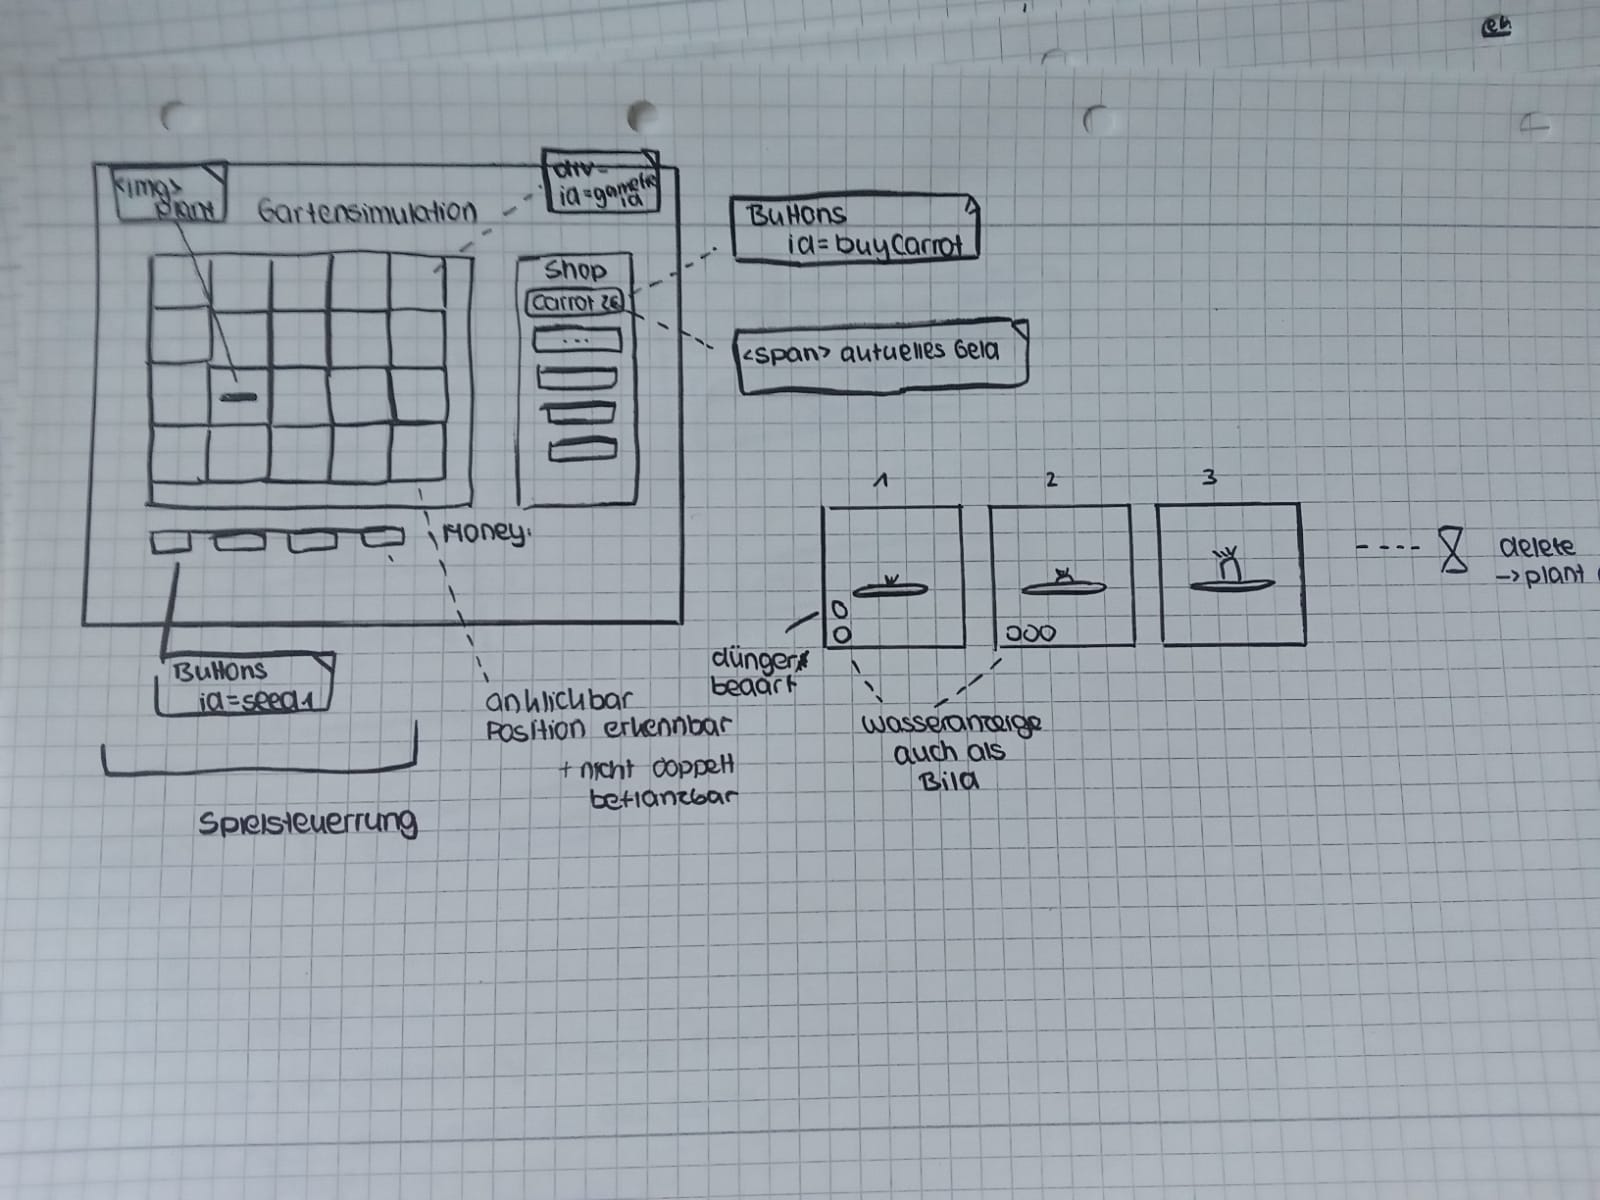 eh
<img>
plant
Gartensimulation
div
Shop
carrot 2€
...
Money:
Buttons
id=buyCarrot
<span> aktuelles Geld
Buttons
id=seed1
Spielsteuerrung
anklickbar
Position erkennbar
+ nicht doppelt
beflanzbar
1
2
3
dünger
bedarf
wasseranzeige
auch als
Bild
delete
→plant